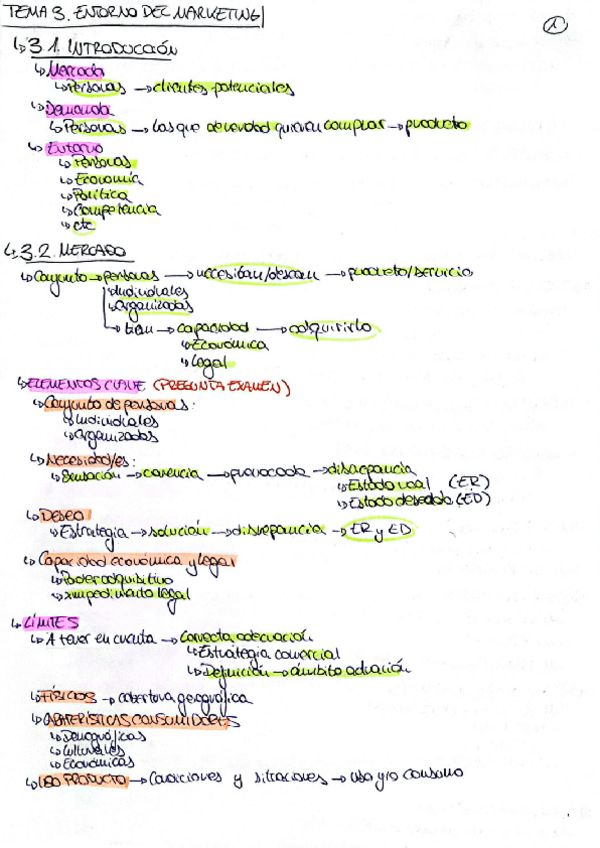 TEMA 3. ENTORNO DEL MARKETING
1
↳ 3.1. INTRODUCCIÓN
↳ Mercado
↳ Personas → clientes potenciales
↳ Demanda
↳ Personas → Las que de verdad quieren comprar → producto
↳ Entorno
↳ Personas
↳ Economía
↳ Política
↳ Competencia
↳ etc
↳ 3.2. MERCADO
↳ Conjunto → personas → necesitan/desean → producto/servicio
↳ Individuales
↳ Organizadas
↳ tienen → capacidad → adquirirlo
↳ Económica
↳ Legal
↳ ELEMENTOS CLAVE (PREGUNTA EXAMEN)
↳ Conjunto de personas:
↳ Individuales
↳ Organizadas
↳ Necesidad/es:
↳ Sensación → carencia → provocada → discrepancia
↳ Estado real (ER)
↳ Estado deseado (ED)
↳ Deseo
↳ Estrategia → solución → discrepancia → ER y ED
↳ Capacidad económica y legal
↳ Poder adquisitivo
↳ Impedimento legal
↳ LÍMITES
↳ A tener en cuenta → correcta adecuación
↳ Estrategia comercial
↳ Definición → ámbito actuación
↳ FÍSICOS → cobertura geográfica
↳ CARATERÍSTICAS CONSUMIDORES
↳ Demográficas
↳ Culturales
↳ Económicas
↳ USO PRODUCTO → Condiciones y situaciones → uso y/o consumo